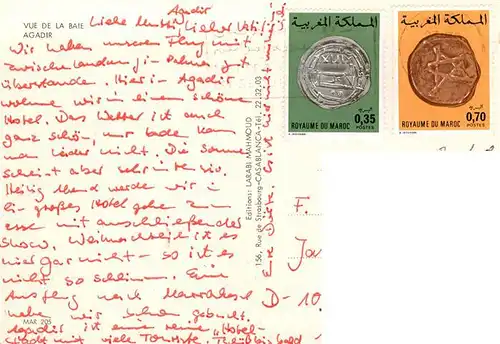 VUE DE LA BAIE
AGADIR
Agadir
Liebe Mutti, Lieber Vati,
Wir haben unseren Flug mit
zwischenlanden i. Palma gut
überstanden. Hier i- Agadir
wohne wir in einem schöne
Hotel. Das Wetter ist auch
ganz schön, nur bade kann
man leider nicht. Die Sonne
scheint aber sehr intensiv.
Heilig Abend werde wir i-
großes Hotel gehe zum
esse mit anschließender
Show. Weihnachtlich ist es
hier gar nicht - so ist es
nicht so schlimm. Eine
Ausflug nach Marrakesch
habe wir schon gebucht.
Agadir ist eine reine "Hotel-
stadt mit viele Touriste.
MAR 205
Editions: LARABI MAHMOUD
156, Rue de Strasbourg-CASABLANCA-Tél. 22.32.03
المملكة المغربية
0,35
البريد
ROYAUME DU MAROC POSTES
المملكة المغربية
0,70
البريد
ROYAUME DU MAROC POSTES
F.
D-10